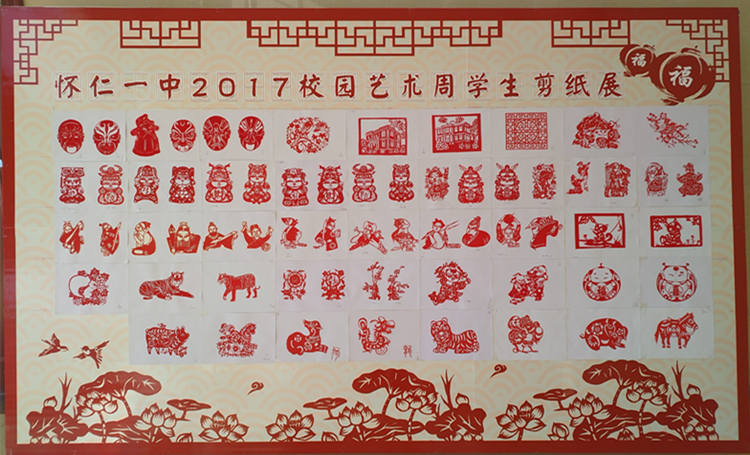 怀仁一中2017校园艺术周学生剪纸展
福
福